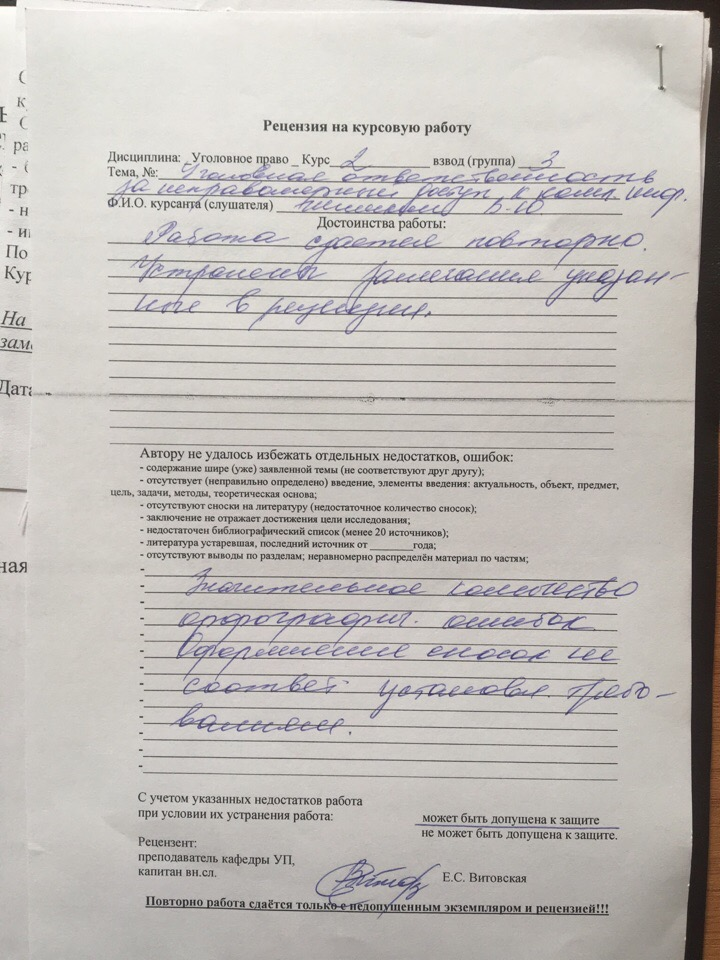 Рецензия на курсовую работу
Дисциплина: Уголовное право Курс 2 взвод (группа) 3
Тема, №: Уголовная ответственность
за неправомерный доступ к комп. инф.
Ф.И.О. курсанта (слушателя)
Достоинства работы:
Работа сдается повторно.
Устранены замечания указан-
ные в рецензии.
Автору не удалось избежать отдельных недостатков, ошибок:
- содержание шире (уже) заявленной темы (не соответствуют друг другу);
- отсутствует (неправильно определено) введение, элементы введения: актуальность, объект, предмет,
цель, задачи, методы, теоретическая основа;
- отсутствуют сноски на литературу (недостаточное количество сносок);
- заключение не отражает достижения цели исследования;
- недостаточен библиографический список (менее 20 источников);
- литература устаревшая, последний источник от ________года;
- отсутствуют выводы по разделам; неравномерно распределён материал по частям;
Значительное количество
орфографич. ошибок
Оформление сносок не
соответ. установл. требо-
ваниям.
С учетом указанных недостатков работа
при условии их устранения работа:
может быть допущена к защите
не может быть допущена к защите.
Рецензент:
преподаватель кафедры УП,
капитан вн.сл.
Е.С. Витовская
Повторно работа сдаётся только с недопущенным экземпляром и рецензией!!!